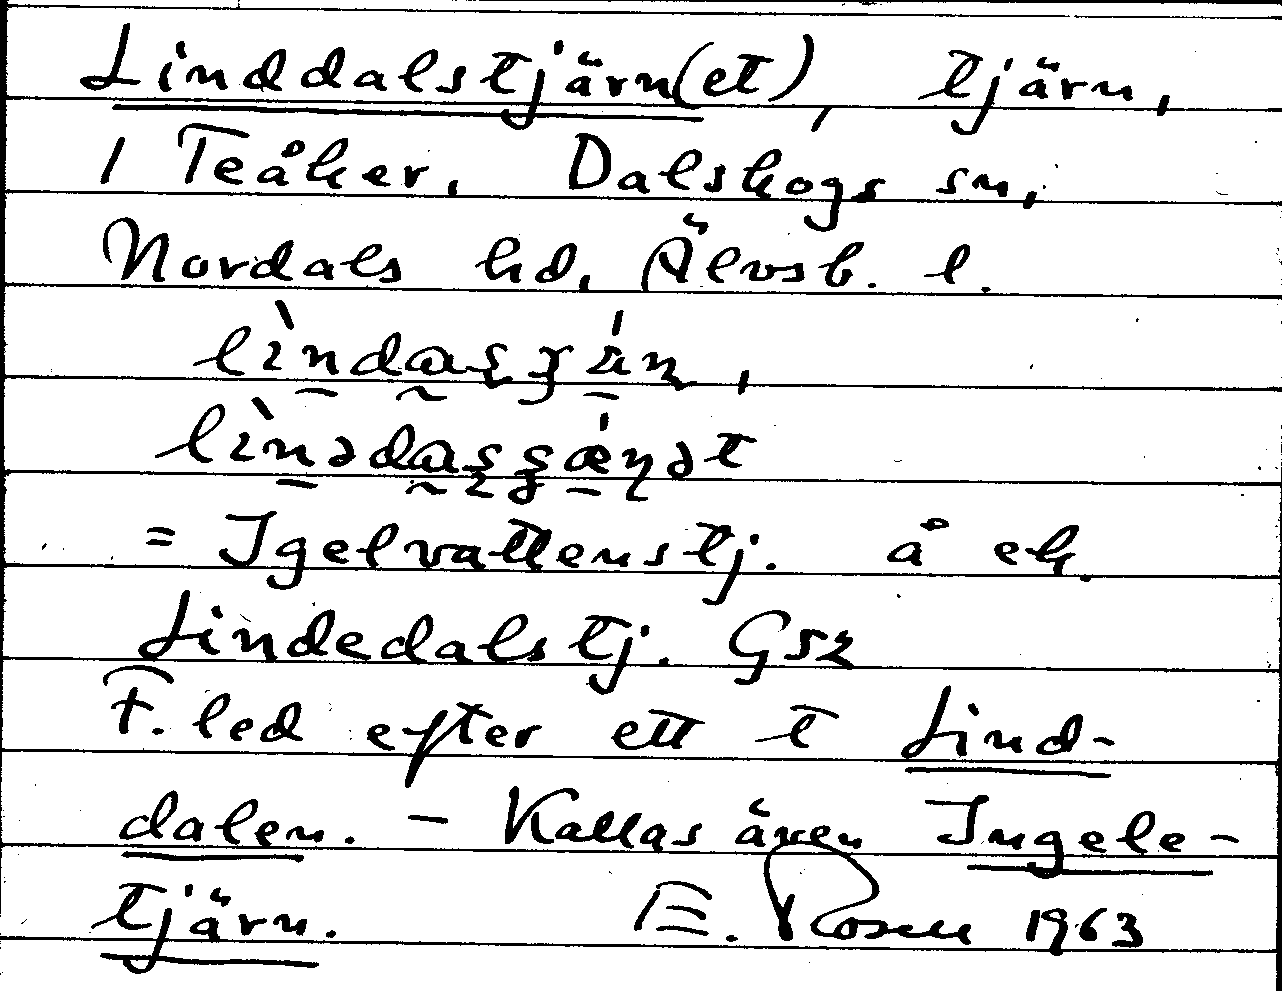 Linddalstjärn(et), tjärn,
i Teåker, Dalskogs sn,
Nordals hd, Älvsb. l.
= Igelvattenstj. å ek.
Lindedalstj. Gsz
F. led efter ett t Lind-
dalen. - Kallas även Ingele-
tjärn. E. Rosell 1963